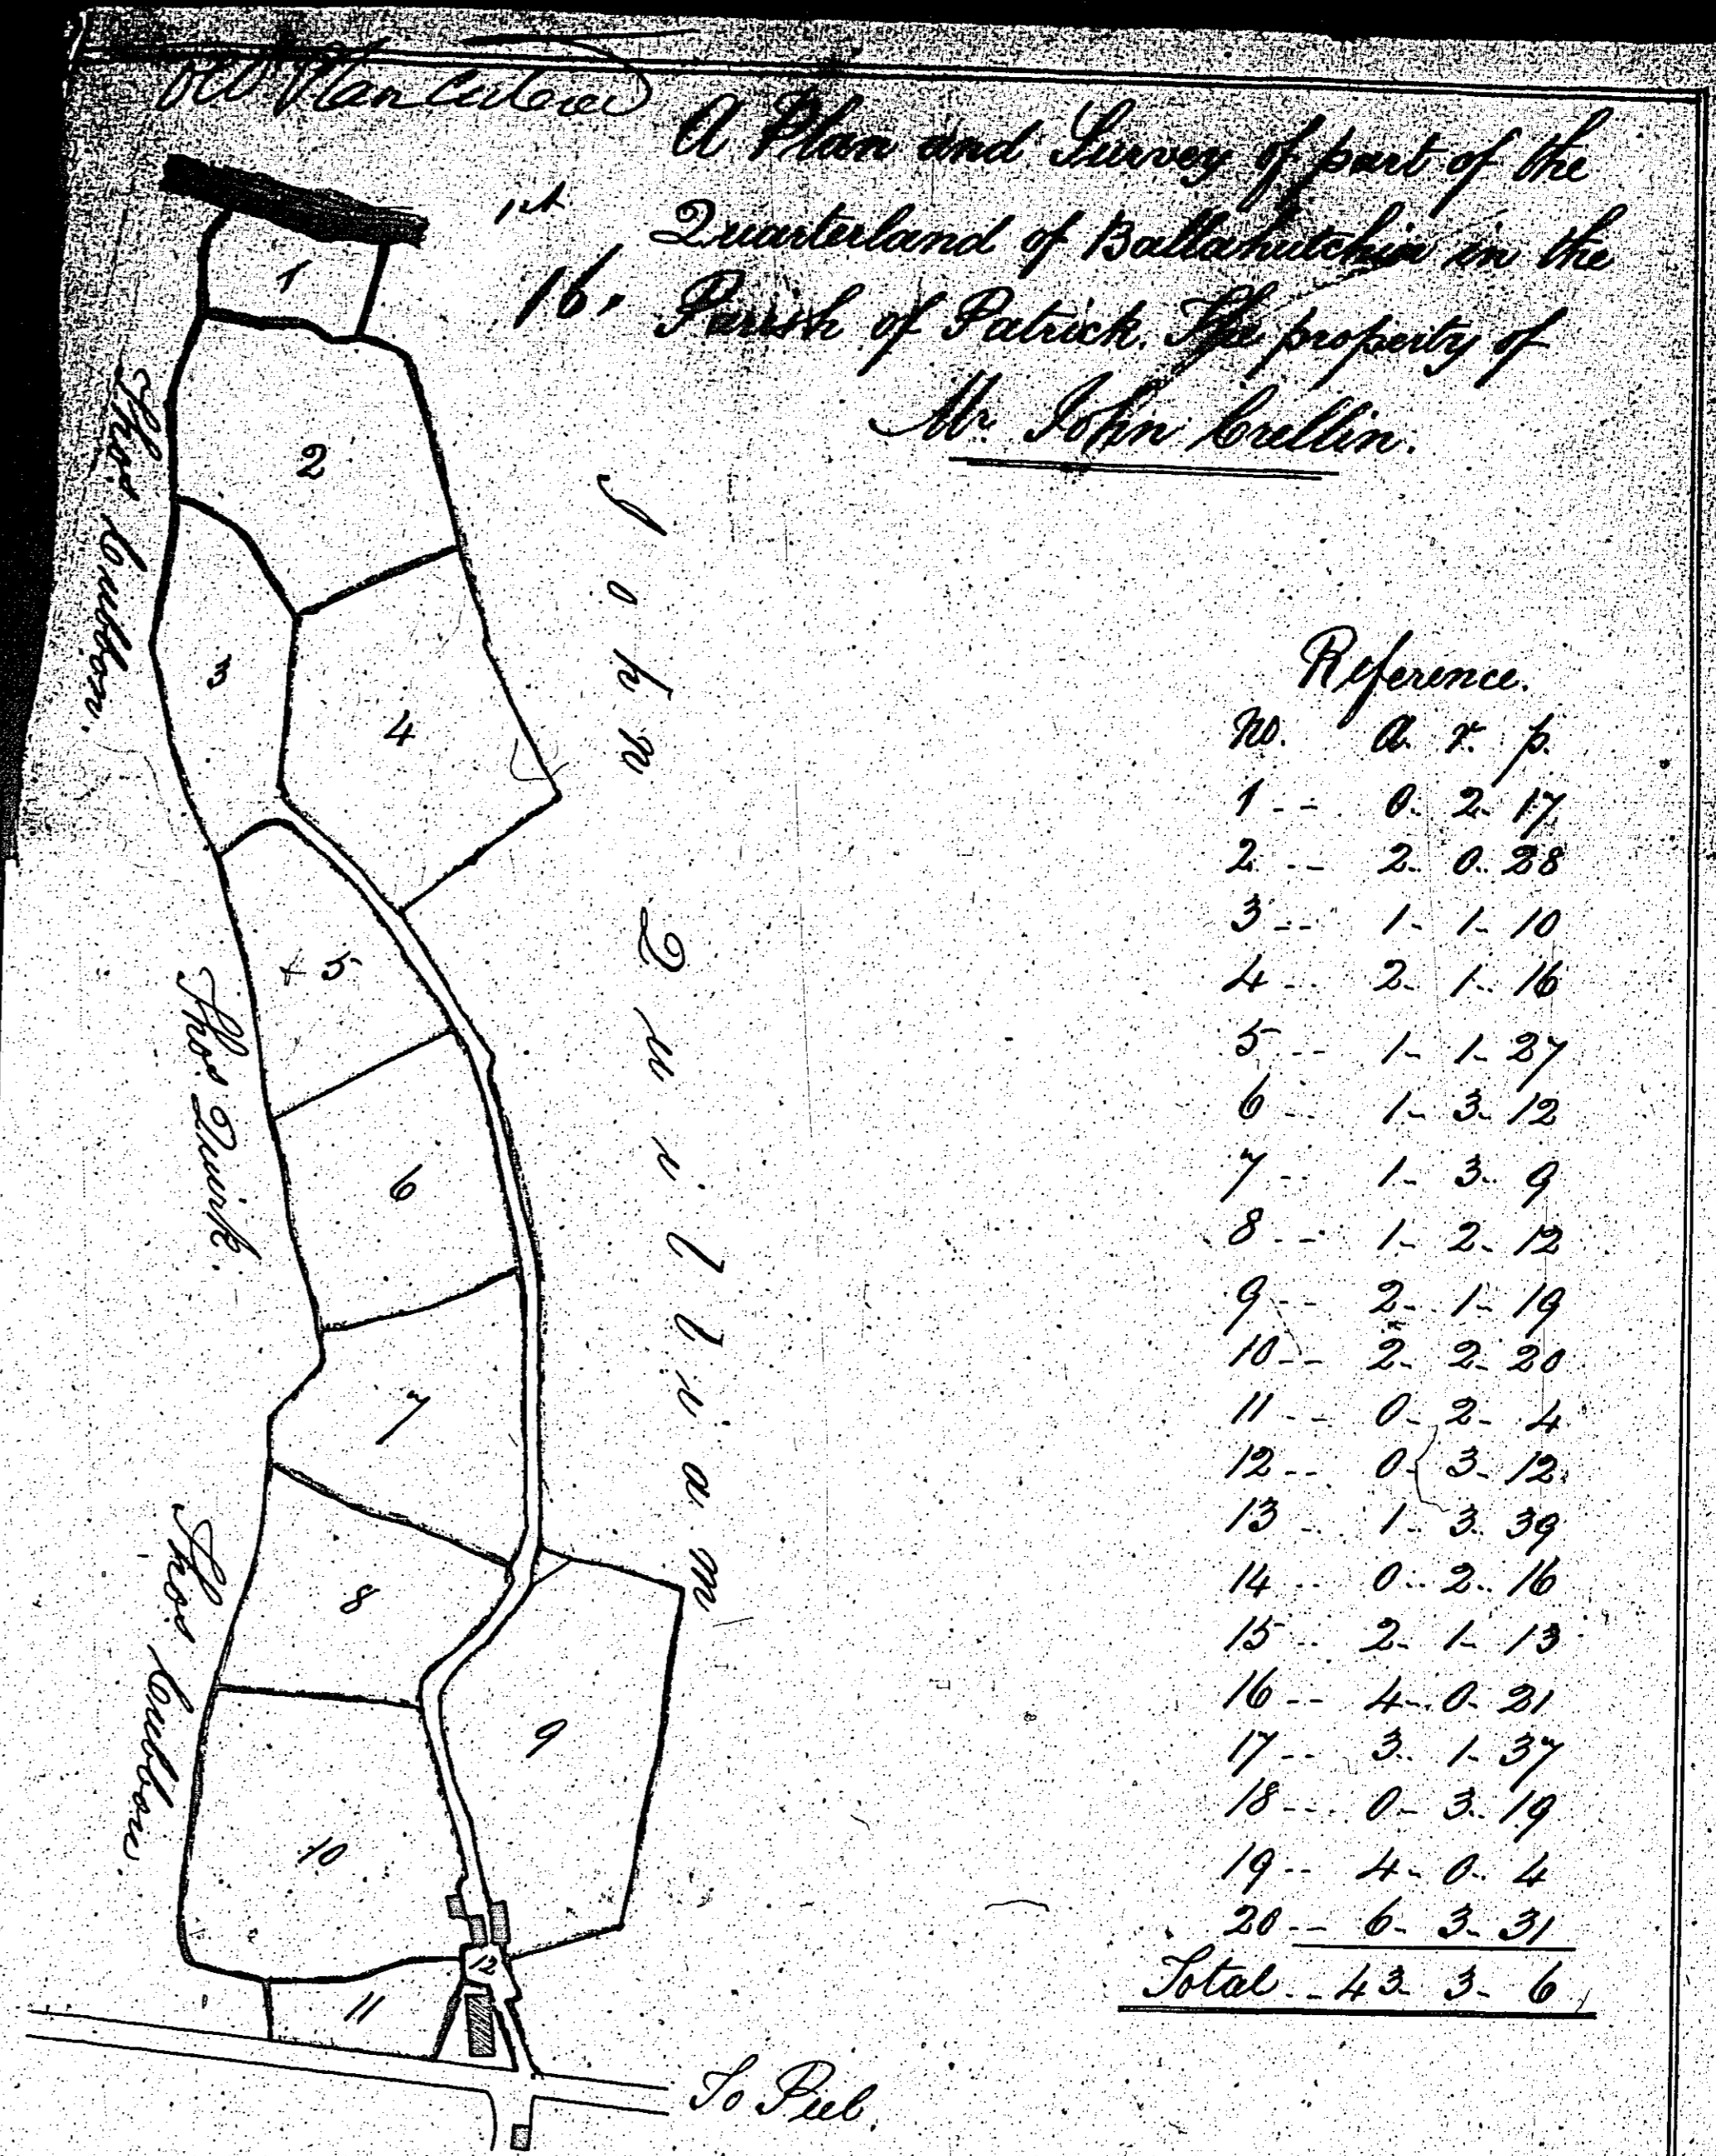 Old Plan
A Plan and Survey of part of the
1st
Quarterland of Ballahutchin in the
16.
Parish of Patrick. The property of
Mr. John Crellin.
Thos Cubbon.
Thos Quirk.
Thos Cubbon.
John Quilliam
1
2
3
4
+ 5
6
7
8
9
10
11
12
To Peel.
Reference.
No. a. r. p.
1 -- 0. 2. 17
2 -- 2. 0. 28
3 -- 1- 1- 10
4 -- 2- 1- 16
5 -- 1- 1- 27
6 -- 1- 3- 12
7 -- 1- 3- 9
8 -- 1- 2- 12
9 -- 2- 1- 19
10 -- 2- 2- 20
11 -- 0- 2- 4
12 -- 0- 3- 12
13 -- 1- 3. 39
14 -- 0- 2- 16
15 -- 2- 1- 13
16 -- 4- 0- 21
17 -- 3- 1- 37
18 -- 0- 3- 19
19 -- 4- 0- 4
20 -- 6- 3- 31
Total -- 43- 3- 6